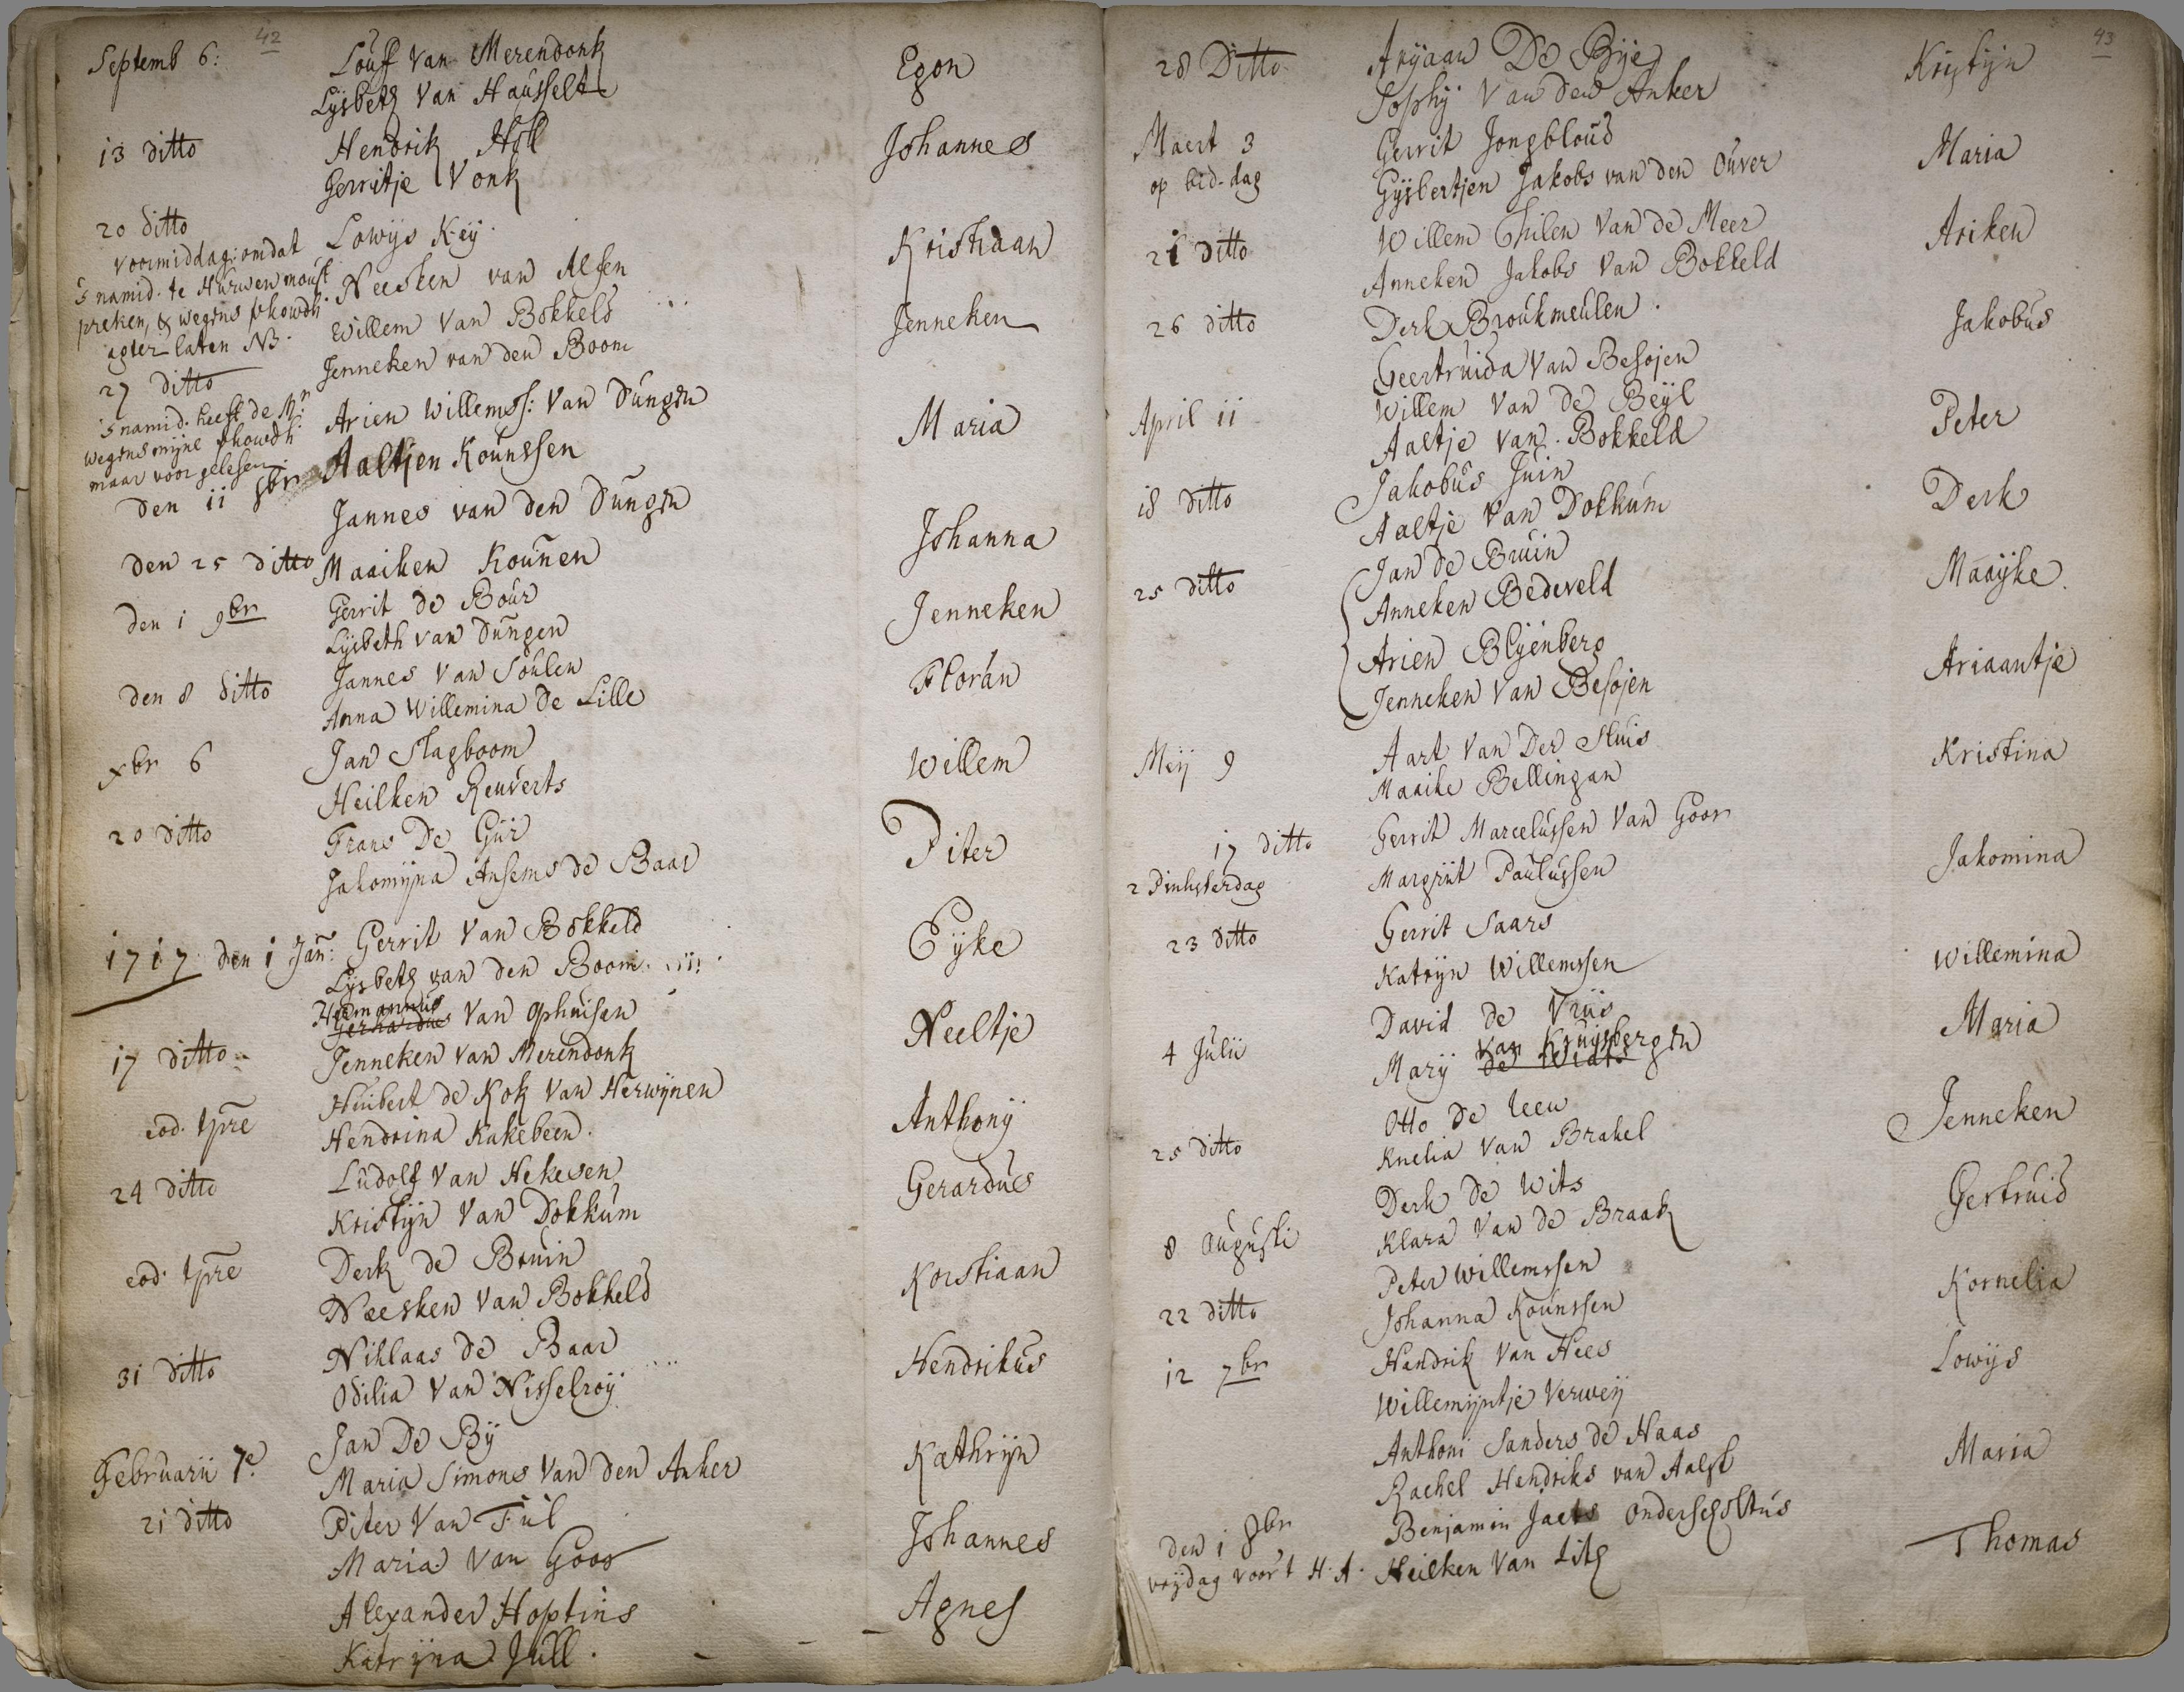 42
Septemb 6: Louff van Merendonk Egon
Lysbeth van Hausselt
13 ditto Hendrik Hol Johannes
Gerritje Vonk
20 ditto Lowijs Keij Kristiaan
voormiddag: omdat
's namid. te Hurwen moust Neesken van Alfen
preken, & wegens
agter laten NB. Willem van Bokkeld Jenneken
27 ditto Jenneken van den Boom
's namid. heeft de Mr. Arien Willemss: van Dungen Maria
wegens mijne
maar voor gelesen. Aaltjen Kounssen
den 11 8br Jannes van den Dungen Johanna
den 25 ditto Maaiken Kounen
den 1 9br Gerrit de Bour Jenneken
Lysbeth van Dungen
den 8 ditto Jannes van Soulen Floran
Anna Willemina de Lille
xbr 6 Jan Slagboom Willem
Heilken Reuverts
20 ditto Frans De Gijr Piter
Jakomijna Ansems de Baar
1717 den 1 Jan: Gerrit van Bokkeld Eijke
Lysbeth van den Boom
Hermannus
17 ditto Gerhardus van Ophuisen Neeltje
Jenneken van Merendonk
eod. tpre Huibert de Kok van Herwijnen Anthonij
Hendrina Kakebeen.
24 ditto Ludolf van Hekesen Gerardus
Kristijn van Dokkum
eod. tpre Derk de Bruin Korstiaan
Neesken van Bokkeld
31 ditto Niklaas de Baar Hendrikus
Odilia van Nisselroij
Februarii 7e Jan De Bij Kathrijn
Maria Simons van den Anker
21 ditto Piter van Tuil Johannes
Maria van Goor
Alexander Hoptins Agnes
Katrijna Jull.
43
28 Ditto Arijaan De Bije Kristijn
Sophij van den Anker
Maert 3 Gerrit Jongbloud Maria
op bid-dag Gijsbertjen Jakobs van den Ouver
21 ditto Willem Thilen van de Meer Ariken
Anneken Jakobs van Bokkeld
26 ditto Derk Broukmeulen. Jakobus
Geertruida van Besojen
April 11 Willem van de Beijl Peter
Aaltje van Bokkeld
18 ditto Jakobus Juin Derk
Aaltje van Dokkum
25 ditto Jan de Bruin Maaijke
Anneken Bedeveld
Arien Blijenberg Ariaantje
Jenneken van Besojen
Meij 9 Aart van Der Sluis Kristina
Maaike Bellingan
17 ditto Gerrit Marcelussen van Goor Jakomina
2 Pinksterdag Margriit Paulussen
23 ditto Gerrit Saars Willemina
Katrijn Willemssen
4 Julii David de Vriis Maria
van Kruijsbergen
Marij de
25 ditto Otto de Leeu Jenneken
Knelia van Brakel
8 Augusti Derk de Wits Gertruid
Klara van de Braak
22 ditto Peter Willemssen Kornelia
Johanna Kounssen
12 7br Handrik van Hees Lowijs
Willemijntje Verweij
Anthoni Sanders de Haas Maria
Rachel Hendriks van Aalst
den 1 8br Benjamin Jaets Thomas
vrijdag voor't H. A. Heilken van Lith